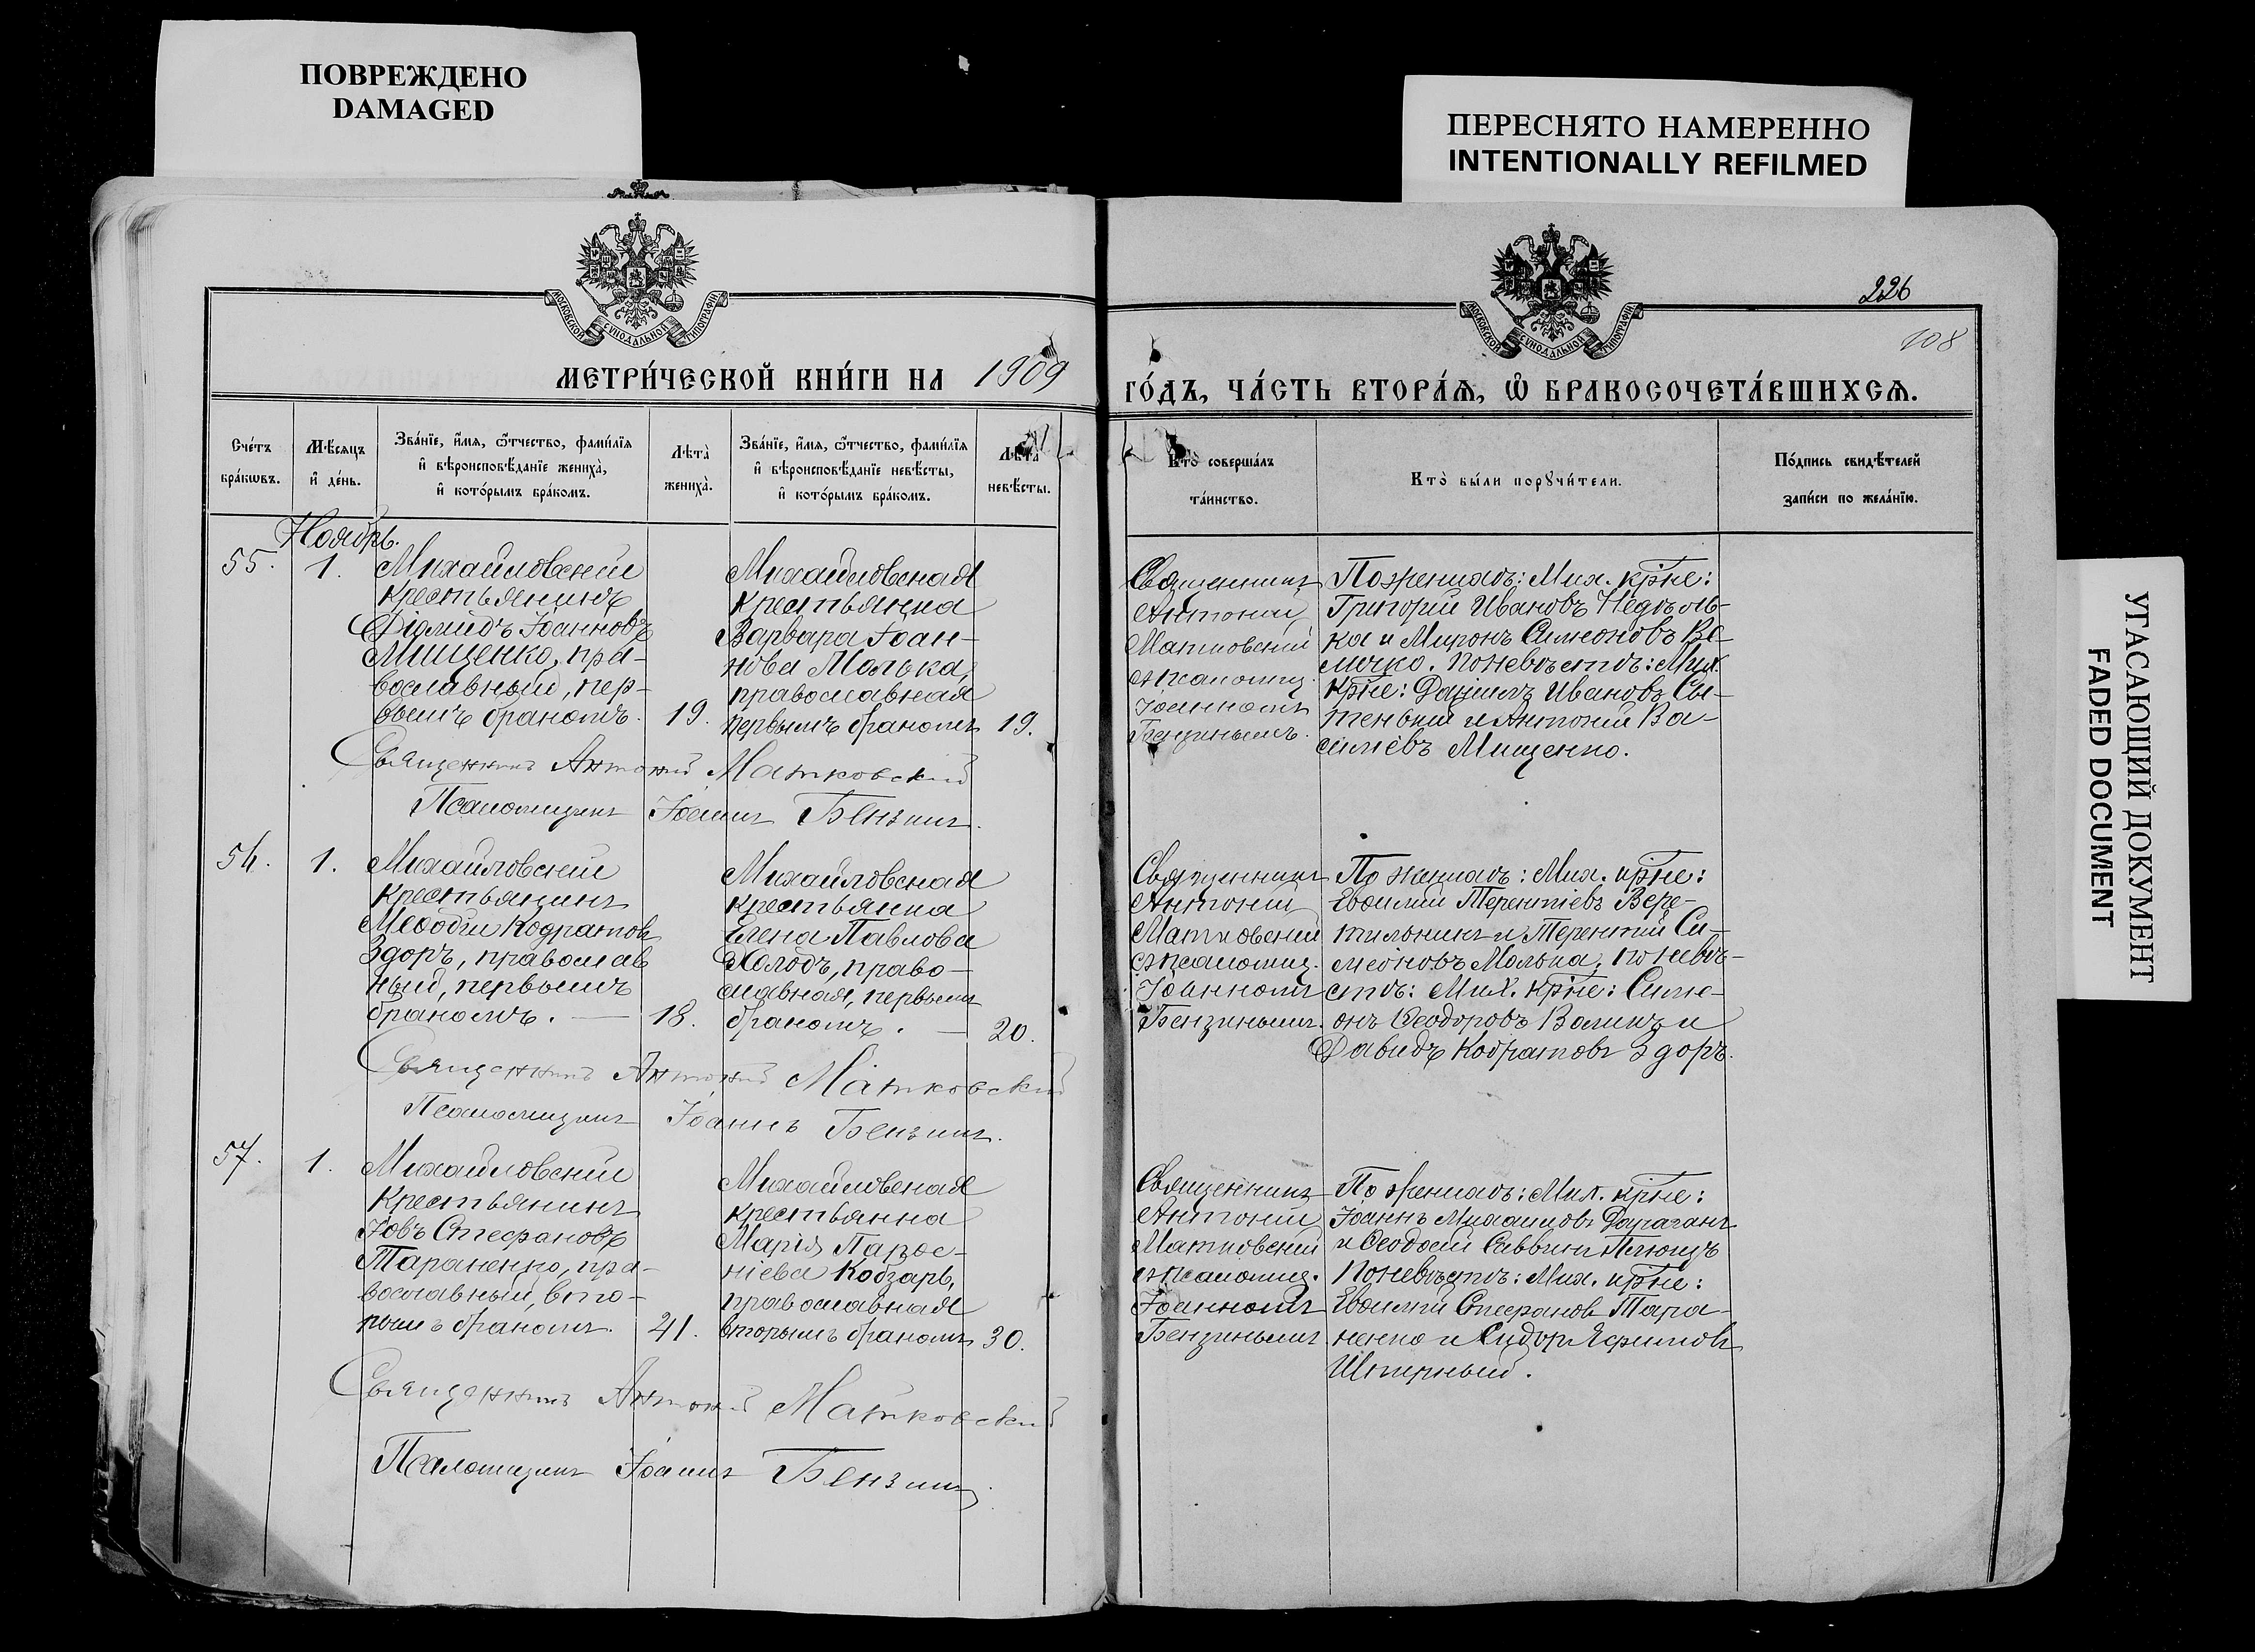 ПОВРЕЖДЕНО
DAMAGED
ПЕРЕСНЯТО НАМЕРЕННО
INTENTIONALLY REFILMED
УГАСАЮЩИЙ ДОКУМЕНТ
FADED DOCUMENT
МОСКОВСКОЙ СѴНОДАЛЬНОЙ ТИПОГРАФІИ
МОСКОВСКОЙ СѴНОДАЛЬНОЙ ТИПОГРАФІИ
226
108
МЕТРИ́ЧЕСКОЙ КНИ́ГИ НА 1909
ГО́ДЪ, ЧА́СТЬ ВТОРА́Ѧ, Ѽ БРАКОСОЧЕТА́ВШИХСѦ.
Сче́тъ
бра́кѡвъ.
Мѣ́сяцъ
и҆ де́нь.
Зва́нїе, и҆́мѧ, ѻ҆́тчество, фами́лїѧ
и҆ вѣроисповѣ́данїе жениха̀,
и҆ кото́рымъ бра́комъ.
Лѣта̀
жениха̀.
Зва́нїе, и҆́мѧ, ѻ҆́тчество, фами́лїѧ
и҆ вѣроисповѣ́данїе невѣ́сты,
и҆ кото́рымъ бра́комъ.
Лѣта̀
невѣ́сты.
Кто̀ соверша́лъ
та́инство.
Кто̀ бы́ли порꙋчи́тели.
По́дпись свидѣ́телей
за́писи по жела́нїю.
Ноябрь.
55.
1.
Михайловскій
крестьянинъ
Діомидъ Іоанновъ
Мищенко, пра-
вославный, пер-
вымъ бракомъ.
19.
Михайловская
крестьянка
Варвара Іоан-
нова Молька,
православная
первымъ бракомъ
19.
Священникъ
Антоній
Матковскій
съ псаломщ.
Іоанномъ
Бензинымъ.
По женихѣ: Мих. кр̄не:
Григорій Ивановъ Недѣль-
ка и Миронъ Симеоновъ Ве-
личко. По невѣстѣ: Мих.
кр̄не: Даніилъ Ивановъ Сы-
тенькій и Антоній Ва-
силіевъ Мищенко.
Священникъ Антоній Матковскій
Псаломщикъ Іоаннъ Бензинъ.
56.
1.
Михайловскій
крестьянинъ
Меѳодій Кодратовъ
Здоръ, православ
ный, первымъ
бракомъ. —
18.
Михайловская
крестьянка
Елена Павлова
Холодъ, право-
славная, первымъ
бракомъ. —
20.
Священникъ
Антоній
Матковскій
съ псаломщ.
Іоанномъ
Бензинымъ.
По женихѣ: Мих. кр̄не:
Евѳимій Терентіевъ Вере-
тильникъ и Терентій Си-
меоновъ Молька, по невѣ-
стѣ: Мих. кр̄не: Симе-
онъ Ѳеодоровъ Воликъ и
Давидъ Кодратовъ Здоръ.
Священникъ Антоній Матковскій
Псаломщикъ Іоаннъ Бензинъ.
57.
1.
Михайловскій
крестьянинъ
Іовъ Стефановъ
Тараненко, пра-
вославный, вто-
рымъ бракомъ.
41.
Михайловская
крестьянка
Марія Парѳе-
ніева Кобзарь,
православная
вторымъ бракомъ
30.
Священникъ
Антоній
Матковскій
съ псаломщ.
Іоанномъ
Бензинымъ.
По женихѣ: Мих. кр̄не:
Іоаннъ Михаиловъ Дараганъ
и Ѳеодосій Саввинъ Плющъ
По невѣстѣ: Мих. кр̄не:
Евѳимій Стефановъ Тара-
ненко и Сидоръ Яфимовъ
Священникъ Антоній Матковскій
Псаломщикъ Іоаннъ Бензинъ.